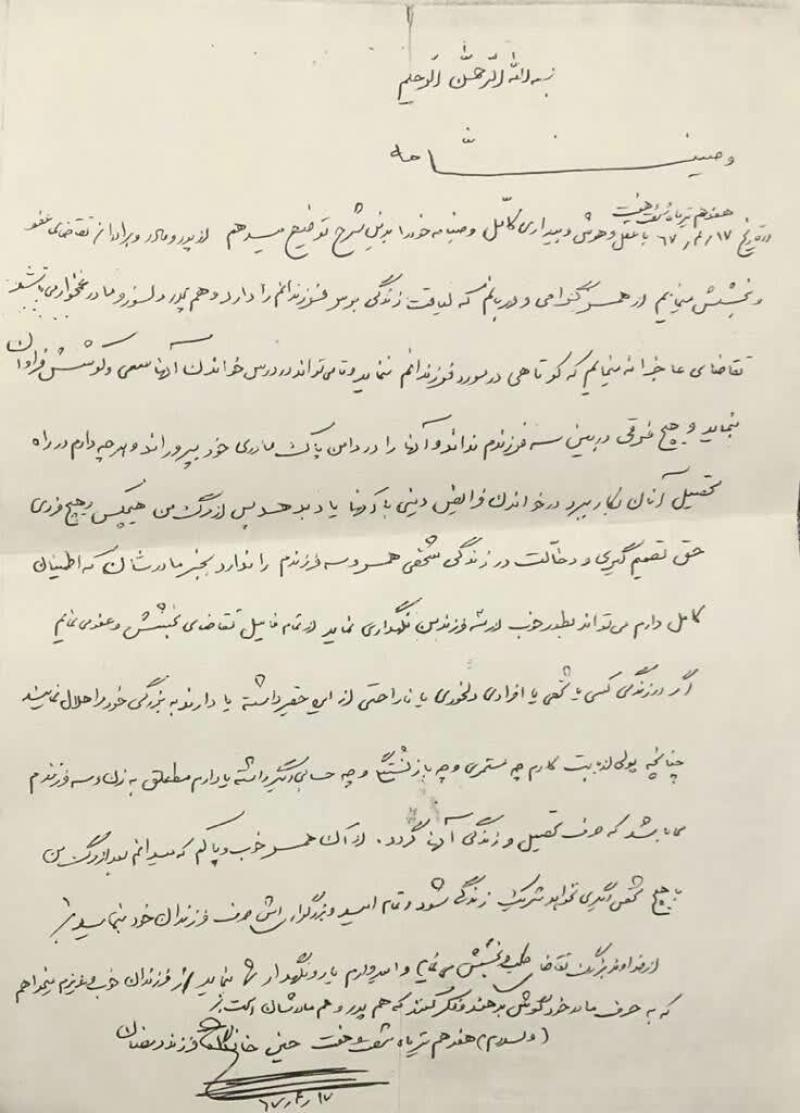 بسم الله الرحمن الرحیم
وصیتنامه
هفدهم تیرماه شصت و هفت
در تاریخ ۶۷/۴/۱۷ با عقل و هوش و بیداری کامل وصیتنامه خود را بدین شرح توضیح میدهم از پدر و مادر و برادران تقاضای عفو
و بخشش مینمایم از همسر گرامی و مهربانم که لیاقت زندگی بوده فرزندانم را دارد و هم پدر دلسوز و مادر غمخواری باشد
تقاضای عاجزانه مینمایم که کوتاهی در مورد فرزندانم ننماید و تا می تواند در درس خواندن آنها سعی و کوشش فراوان
بنماید و هیچ فرقی در بین سه فرزندم نداند و آنها را در دامن پاک مادری خود بپروراند و هر چه دارم در راه
تحصیل آنان بکار ببرد در خواندن فرائض دینی با آنها یاد بدهد پس از مرگ من هیچکس و هیچ فردی
حق تصمیم گیری و دخالت در زندگی شخصی همسر و سه فرزندم را ندارد بجز مادرشان که اطمینان
کامل دارم می تواند بطور خوب از سه فرزند من نگهداری نماید از تمام فامیل تقاضای بخشش و عفو می نمایم
اگر در زندگی کسی یا شخصی یا افرادی دلخوری یا ناراحتی از این حقیر داشته یا دارند به بزرگی خود مرا حلال نمایند
چنانچه پولی از بابت کارم چه مستمری و چه بازنشستگی و چه حسابی دیگر داشته یا دارم متعلق به زن و سه فرزندم
می باشد که صرف تحصیل و زندگی آنها گردد. از آن همسر خوب و پاکم که میدانم بعد از مرگ من
با هیچ شخص دیگری نخواهد شریک زندگی شود و تمام امید و بزرگواری اش صرف فرزندان خود بنماید
از خداوند بزرگ تقاضای طلب بخشش می نمایم و امیدوارم یار و نگهدار شما نماید از فرزندان خوب و عزیزم میخواهم
که به حرف مادر خود گوش بدهند و فکر کنند که هم پدر و هم مادرشان است
(والسلام) هفدهم تیرماه شصت و هفت فرزند رمضان
۶۷/۴/۱۷